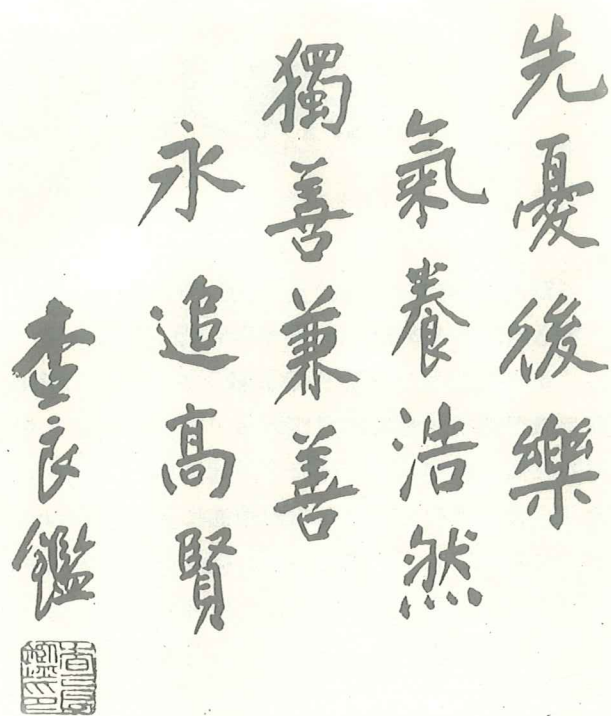 先憂後樂
氣養浩然
獨善兼善
永追高賢
查良鑑